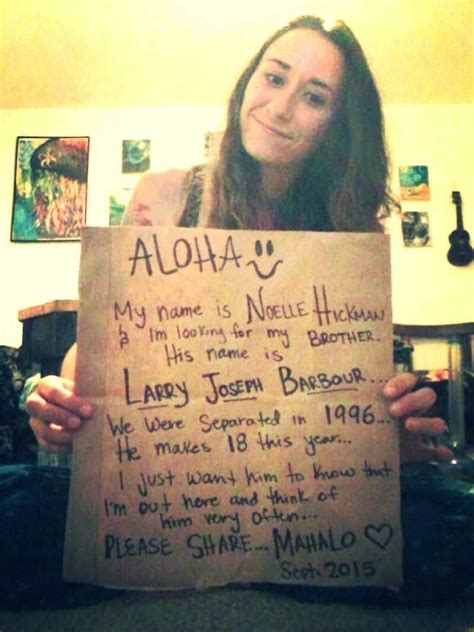 ALOHA
My name is NOELLE HICKMAN
& Im looking for my BROTHER.
His name is
LARRY JOSEPH BARBOUR...
We Were Separated in 1996...
He makes 18 this year...
I just want him to know that
I'm out here and think of
him very often...
PLEASE SHARE... MAHALO ♡
Sept. 2015